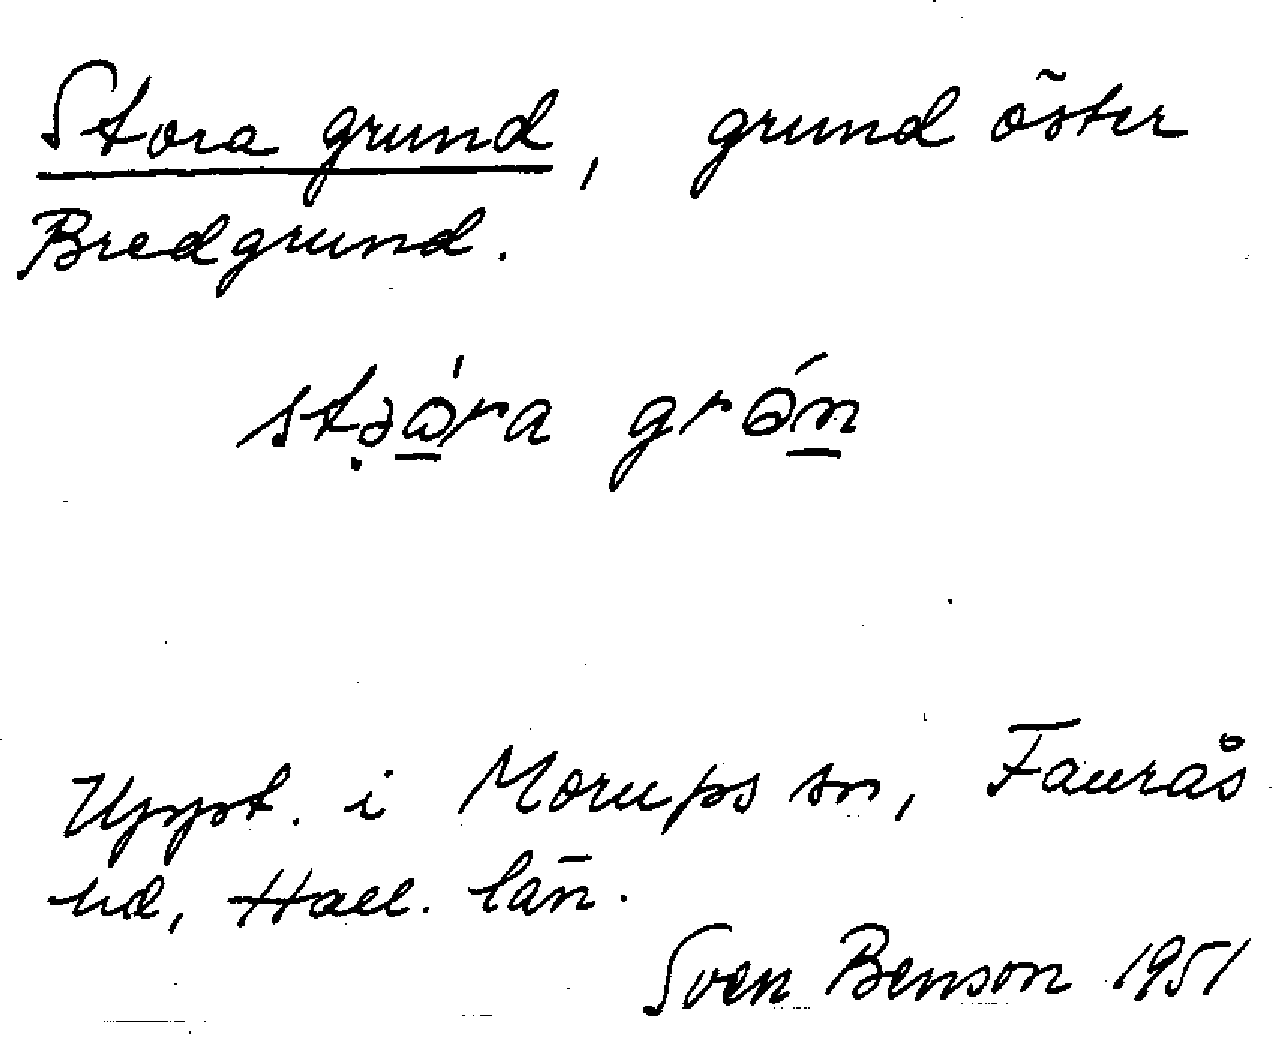 Stora grund, grund öster
Bredgrund.
stə̣ώ̲ra grɵ́n̲
Uppt. i Morups sn, Faurås
hd, Hall. län.
Sven Benson 1951